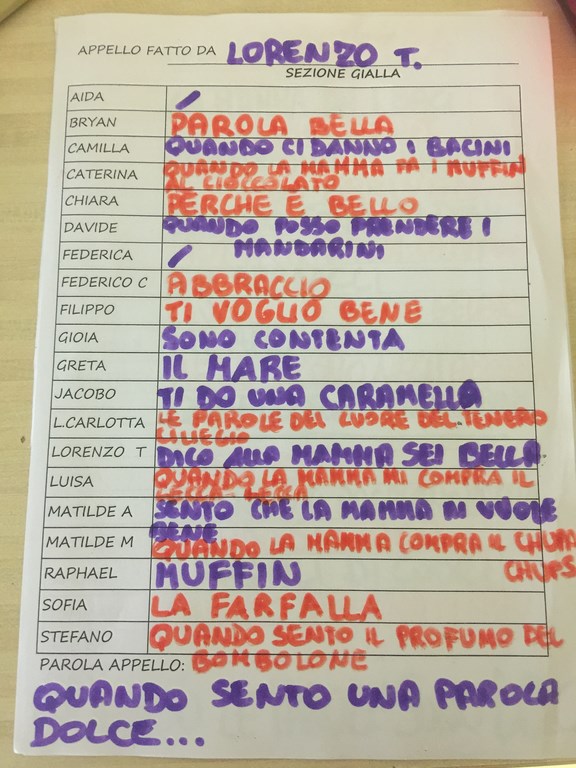 APPELLO FATTO DA LORENZO T.
SEZIONE GIALLA
AIDA /
BRYAN PAROLA BELLA
CAMILLA QUANDO CI DANNO I BACINI
CATERINA QUANDO LA MAMMA FA I MUFFIN
AL CIOCCOLATO
CHIARA PERCHE E BELLO
DAVIDE QUANDO POSSO PRENDERE I
MANDARINI
FEDERICA /
FEDERICO C ABBRACCIO
FILIPPO TI VOGLIO BENE
GIOIA SONO CONTENTA
GRETA IL MARE
JACOBO TI DO UNA CARAMELLA
L.CARLOTTA LE PAROLE DEL CUORE DEL TENERO
CILIEGIO
LORENZO T DICO ALLA MAMMA SEI BELLA
LUISA QUANDO LA MAMMA MI COMPRA IL
LECCA-LECCA
MATILDE A SENTO CHE LA MAMMA MI VUOLE
BENE
MATILDE M QUANDO LA MAMMA COMPRA IL CHUPA
CHUPS
RAPHAEL MUFFIN
SOFIA LA FARFALLA
STEFANO QUANDO SENTO IL PROFUMO DEL
BOMBOLONE
PAROLA APPELLO:
QUANDO SENTO UNA PAROLA
DOLCE...